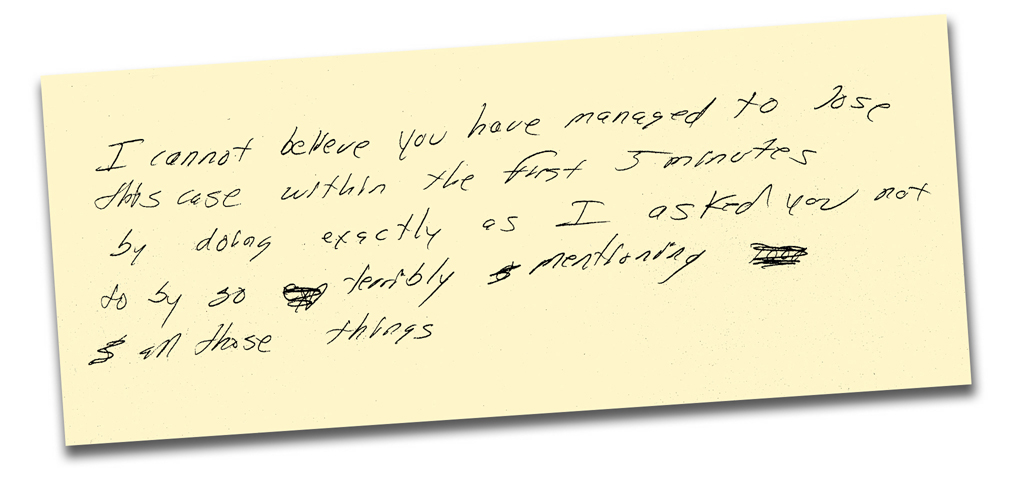 I cannot believe you have managed to lose
this case within the first 5 minutes
by doing exactly as I asked you not
to by so terribly mentioning
all those things